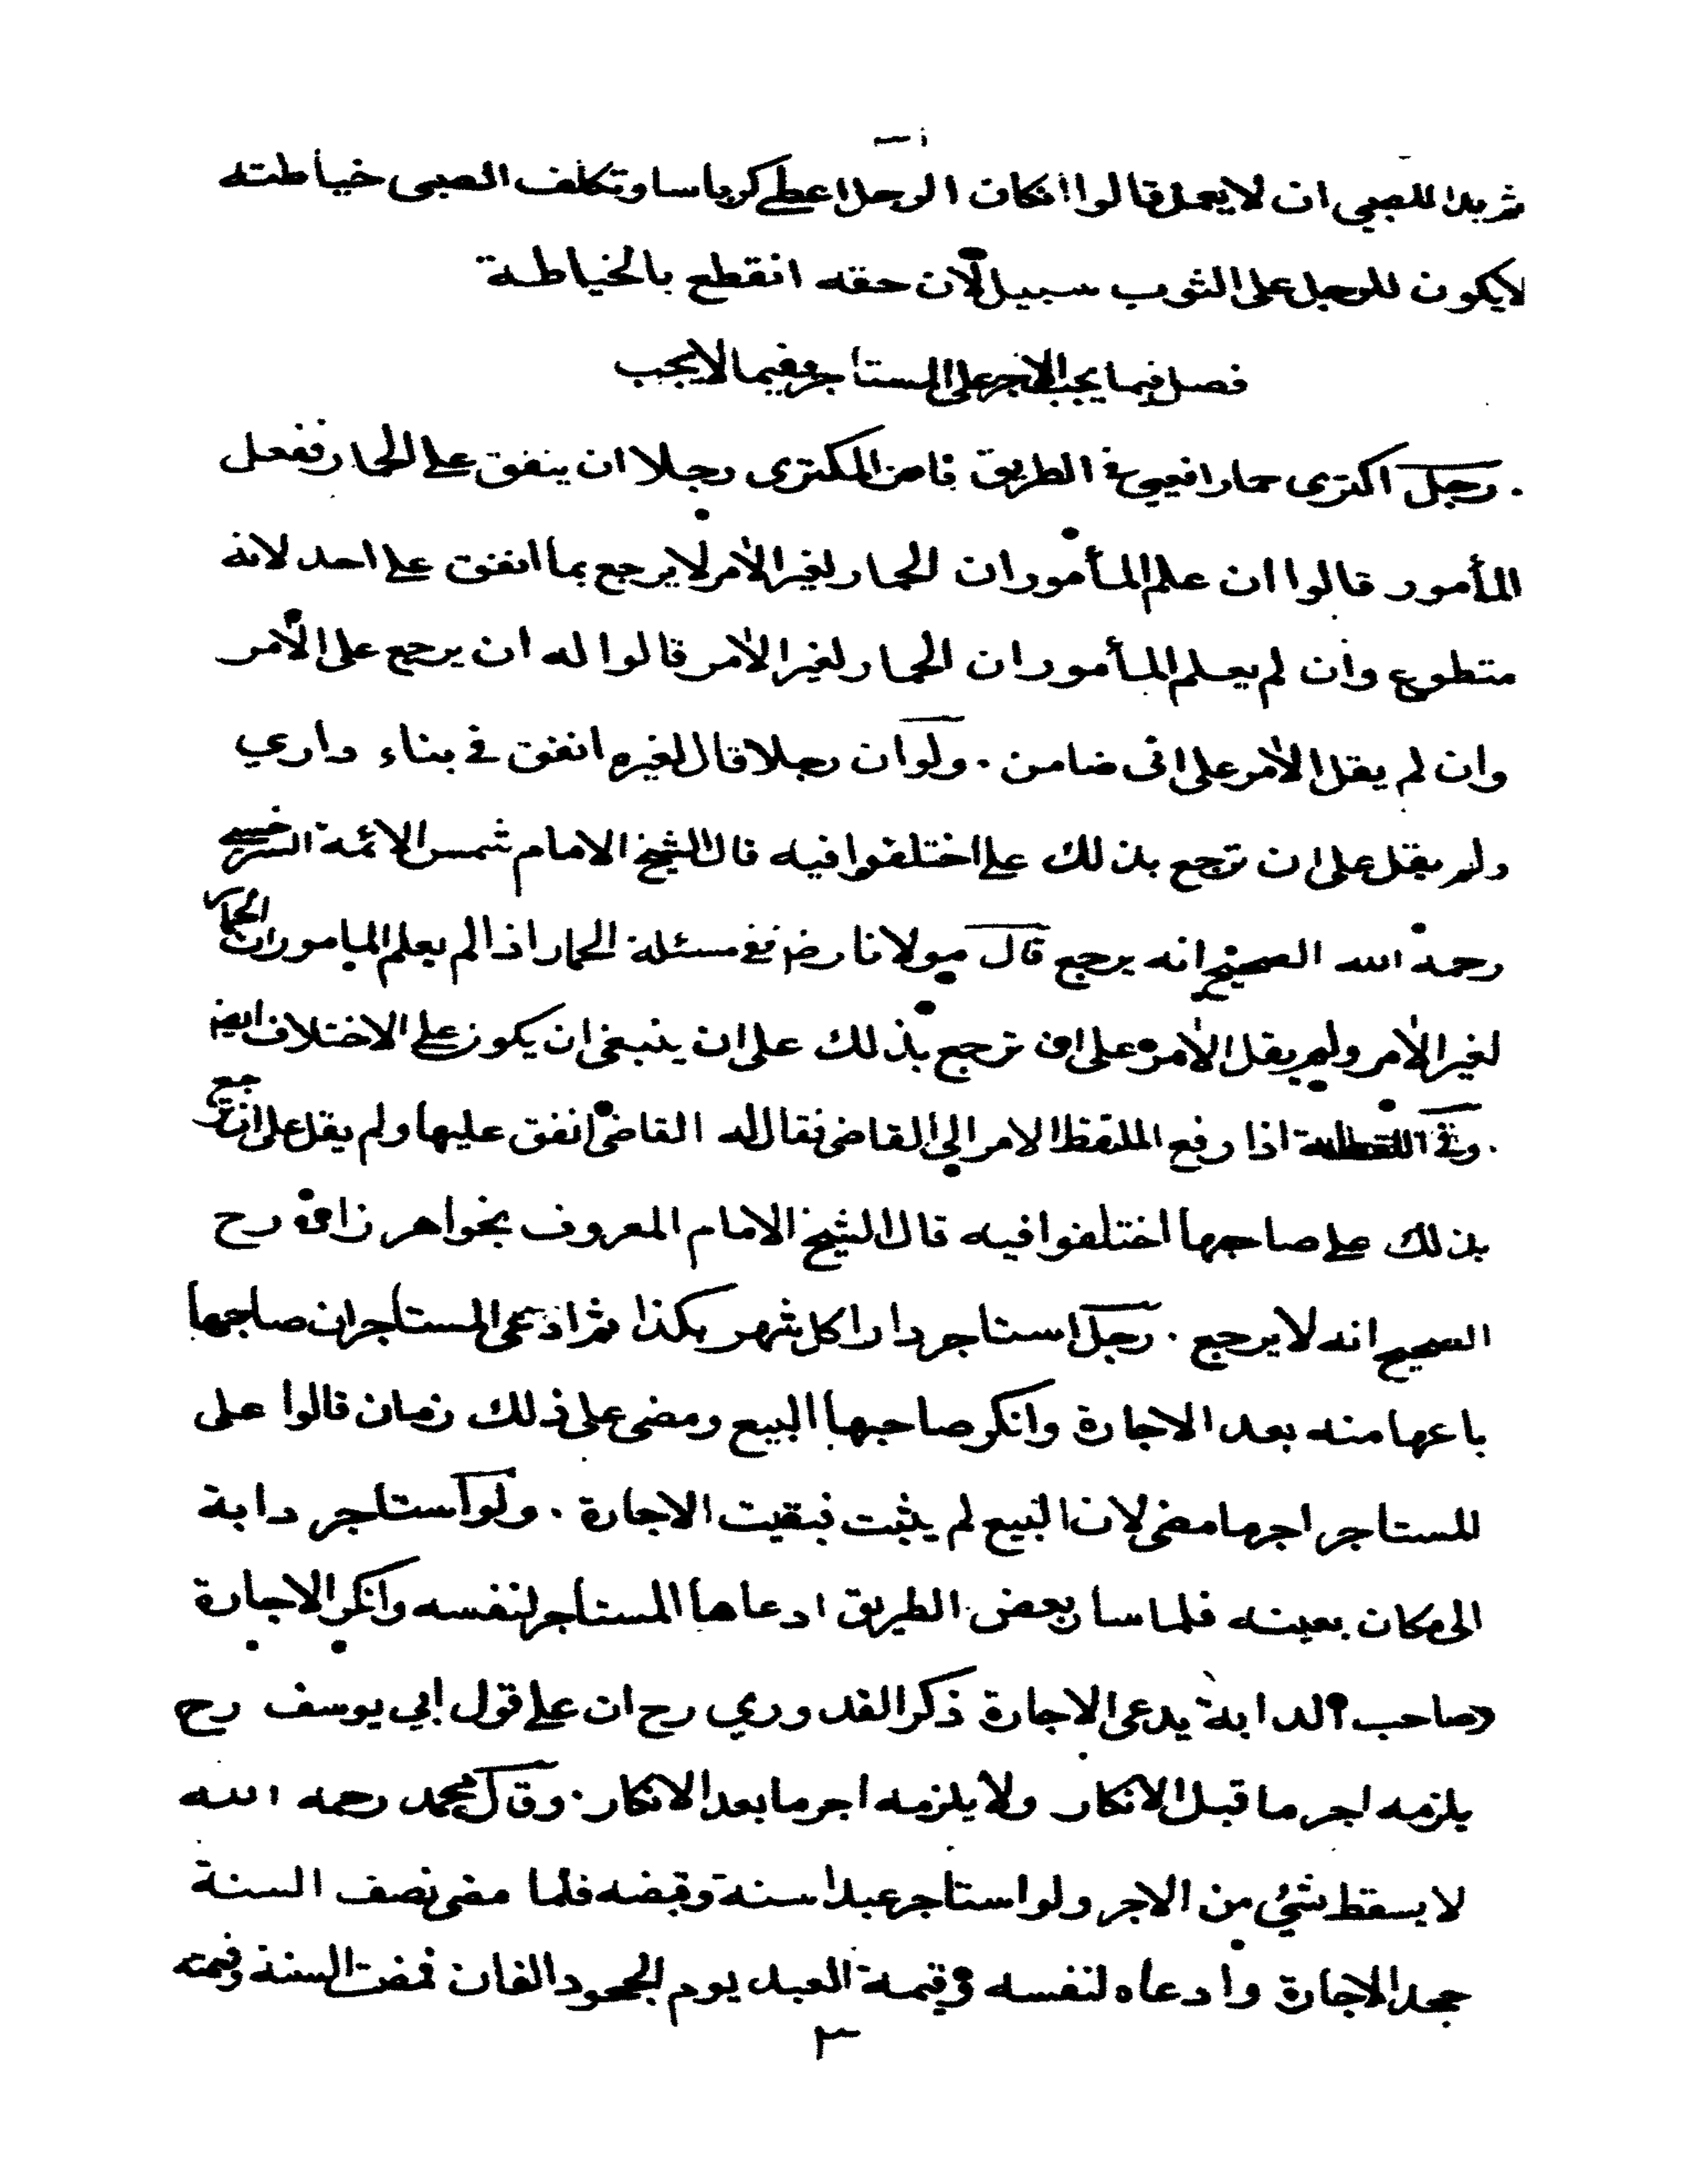 ثم بدا للصبي ان لا يعمل قالوا انكان الرجل اعطى كرباسا وتكلف الصبى خياطته
لايكون للرجل على الثوب سبيل لان حقه انقطع بالخياطة
فصل فيما يجب الاجر على المستاجر وفيما لايجب
. رجل اكترى حمارا فعيي في الطريق فامر المكترى رجلا ان ينفق على الحمار ففعل
المأمور قالوا ان علم المأمور ان الحمار لغير الأمر لا يرجع بما انفق على احد لانه
متطوع وان لم يعلم المأمور ان الحمار لغير الأمر قالوا له ان يرجع على الأمر
وان لم يقل الأمر على انى ضامن . ولو ان رجلا قال لغيره انفق في بناء داري
ولم يقل على ان ترجع بذلك على اختلفوا فيه قال الشيخ الامام شمس الائمة السرخسي
رحمة الله الصحيح انه يرجع قال مولانا رض ففي مسئلة الحمار اذا لم يعلم المامور ان الحمار
لغير الأمر ولم يقل الأمر على ان ترجع بذلك على ان ينبغى ان يكون على الاختلاف ايضا
. وفي اللقطة اذا رفع الملتقط الامر الى القاضى فقال له القاضى انفق عليها ولم يقل على ان ترجع
بذلك على صاحبها اختلفوا فيه قال الشيخ الامام المعروف بخواهر زاده رح
الصحيح انه لا يرجع . رجل استاجر دارا كل شهر بكذا ثم ادعى المستاجر ان صاحبها
باعها منه بعد الاجارة وانكر صاحبها البيع ومضى على ذلك زمان قالوا على
للستاجر اجر ما مضى لان البيع لم يثبت فبقيت الاجارة . ولو استاجر دابة
الى مكان بعينه فلما سار بعض الطريق ادعاها المستاجر لنفسه وانكر الاجارة
وصاحب الدابة يدعى الاجارة ذكر القدوري رح ان على قول ابي يوسف رح
يلزمه اجر ما قبل الانكار ولا يلزمه اجر ما بعد الانكار . وقال محمد رحمه الله
لا يسقط شئ من الاجر ولو استاجر عبدا سنة وقبضه فلما مضى نصف السنة
جحد الاجارة وادعاه لنفسه وقيمة العبد يوم الجحود الفان فمضت السنة وقيمته